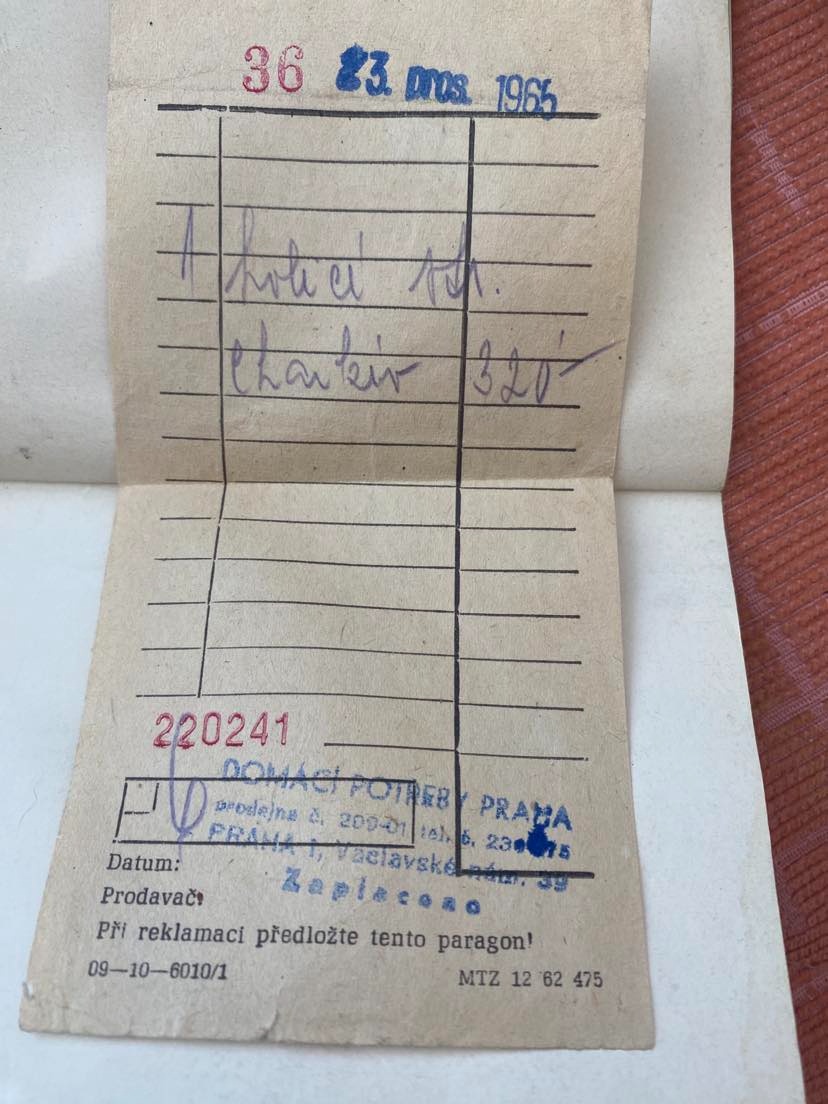 36 23. pros. 1965
1 holicí str.
Charkiv 320
220241
DOMÁCÍ POTŘEBY PRAHA
prodejna č. 209-01, tel. č.
PRAHA 1, Václavské nám. 39
Zaplaceno
Datum:
Prodavač:
Při reklamaci předložte tento paragon!
09—10—6010/1 MTZ 12 62 475